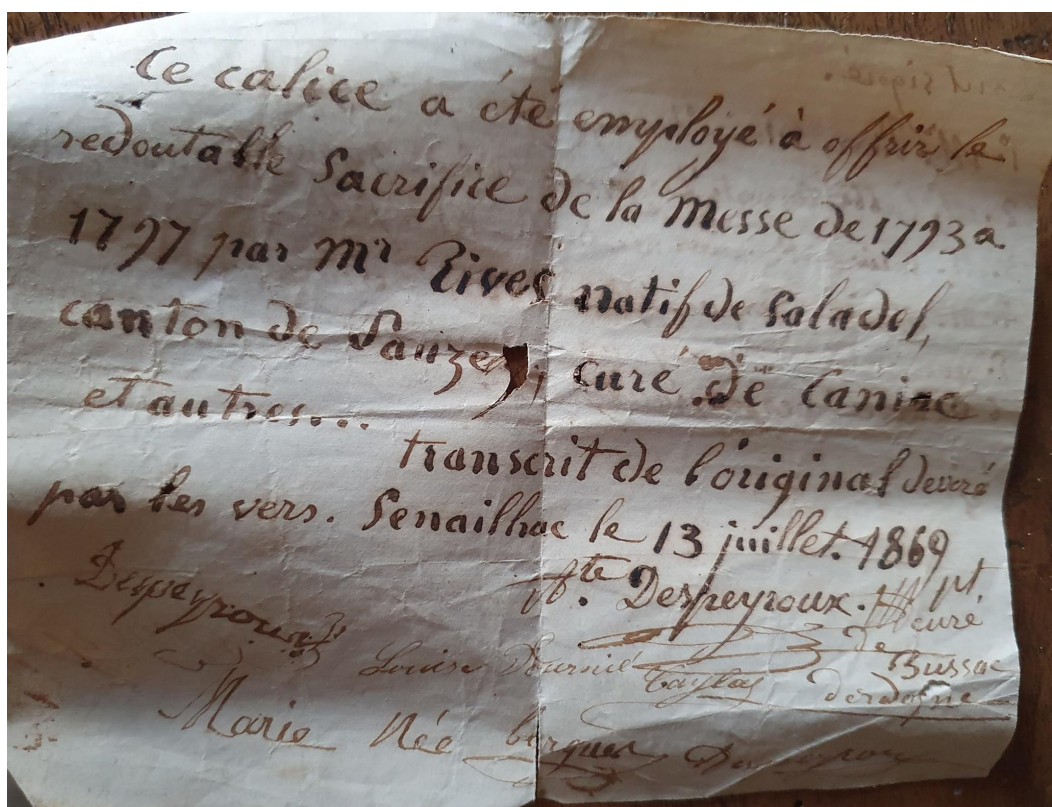 Ce calice a été employé à offrir le
redoutable Sacrifice de la Messe de 1793 a
1797 par Mr Rives natif de Saladel,
canton de Sauzet, curé de Canize
et autres...
transcrit de l'original devoré
par les vers. Senailhac le 13 juillet. 1869
Despeyroux
Despeyroux. pt
curé
de
Bussac
dordogne
Louise Fournié
Marie Née bergues